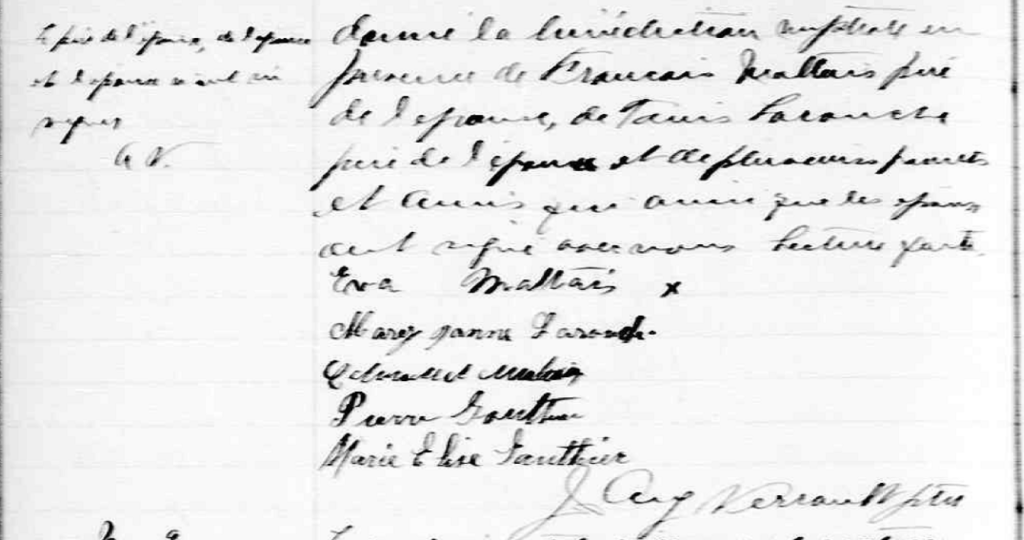 le père de l'épouse, de l'épouse
et l'épouse n'ont su
signer
A V.
donné la bénédiction nuptiale en
présence de Francois Maltais père
de l'épouse, de Larouche
père de l'époux et de plusieurs parents
et amis qui ainsi que les époux
ont signé avec nous Lecture faite.
Eva Maltais x
Mary Larouche
Pierre Gauthier
Marie Elise Gauthier
J Aug Verreault ptre